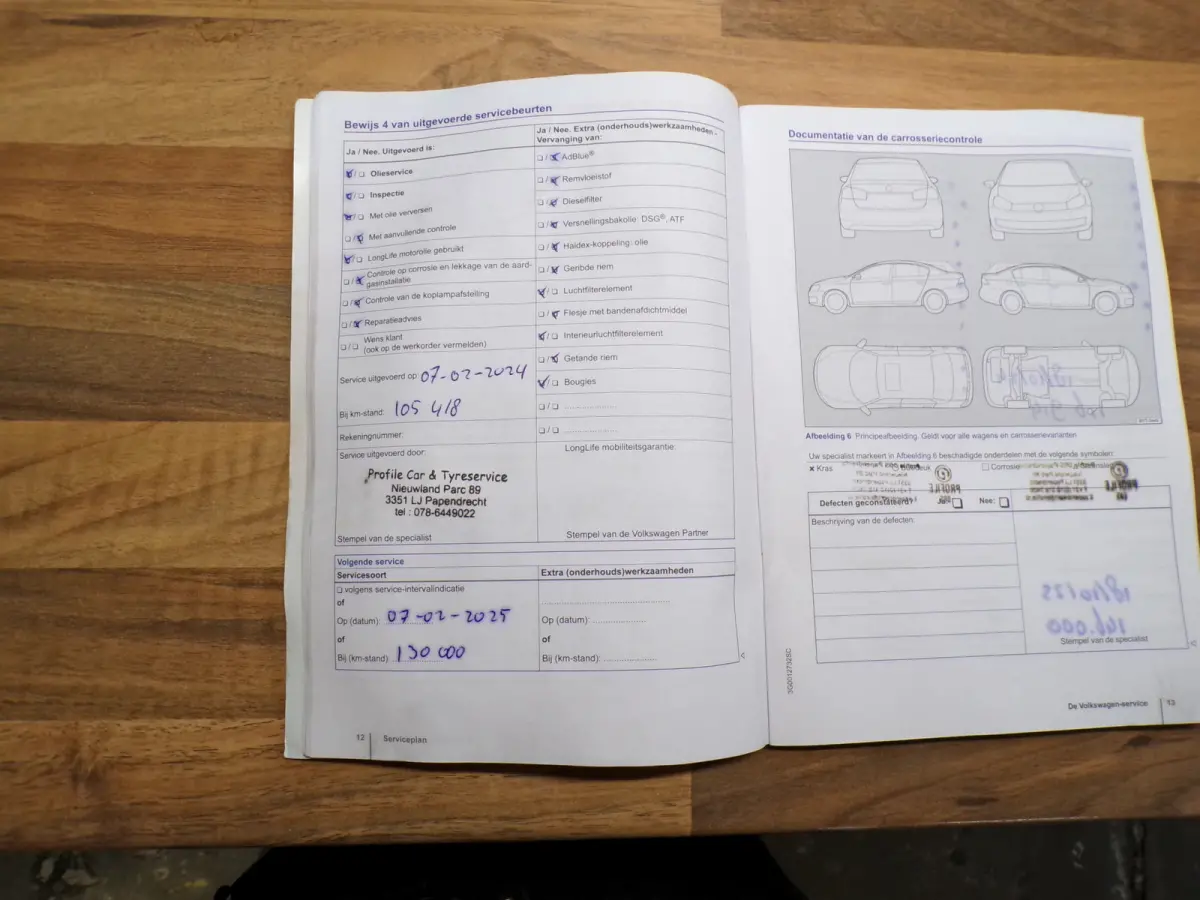 Bewijs 4 van uitgevoerde servicebeurten
Ja / Nee. Uitgevoerd is:
Olieservice
Inspectie
Met olie verversen
Met aanvullende controle
LongLife motorolie gebruikt
Controle op corrosie en lekkage van de aard-
gasinstallatie
Controle van de koplampafstelling
Reparatieadvies
Wens klant
(ook op de werkorder vermelden)
Service uitgevoerd op: 07-02-2024
Bij km-stand: 105 418
Rekeningnummer:
Service uitgevoerd door:
Profile Car & Tyreservice
Nieuwland Parc 89
3351 LJ Papendrecht
tel : 078-6449022
Stempel van de specialist
Ja / Nee. Extra (onderhouds)werkzaamheden -
Vervanging van:
AdBlue®
Remvloeistof
Dieselfilter
Versnellingsbakolie: DSG®, ATF
Haldex-koppeling: olie
Geribde riem
Luchtfilterelement
Flesje met bandenafdichtmiddel
Interieurluchtfilterelement
Getande riem
Bougies
LongLife mobiliteitsgarantie:
Stempel van de Volkswagen Partner
Volgende service
Servicesoort
volgens service-intervalindicatie
of
Op (datum): 07-02-2025
of
Bij (km-stand): 130 000
Extra (onderhouds)werkzaamheden
Op (datum):
of
Bij (km-stand):
12 Serviceplan
Documentatie van de carrosseriecontrole
Afbeelding 6 Principeafbeelding. Geldt voor alle wagens en carrosserievarianten
Uw specialist markeert in Afbeelding 6 beschadigde onderdelen met de volgende symbolen:
Kras
Corrosie
Defecten geconstateerd? Ja: Nee:
Beschrijving van de defecten:
Stempel van de specialist
3G0012732SC
De Volkswagen-service 13